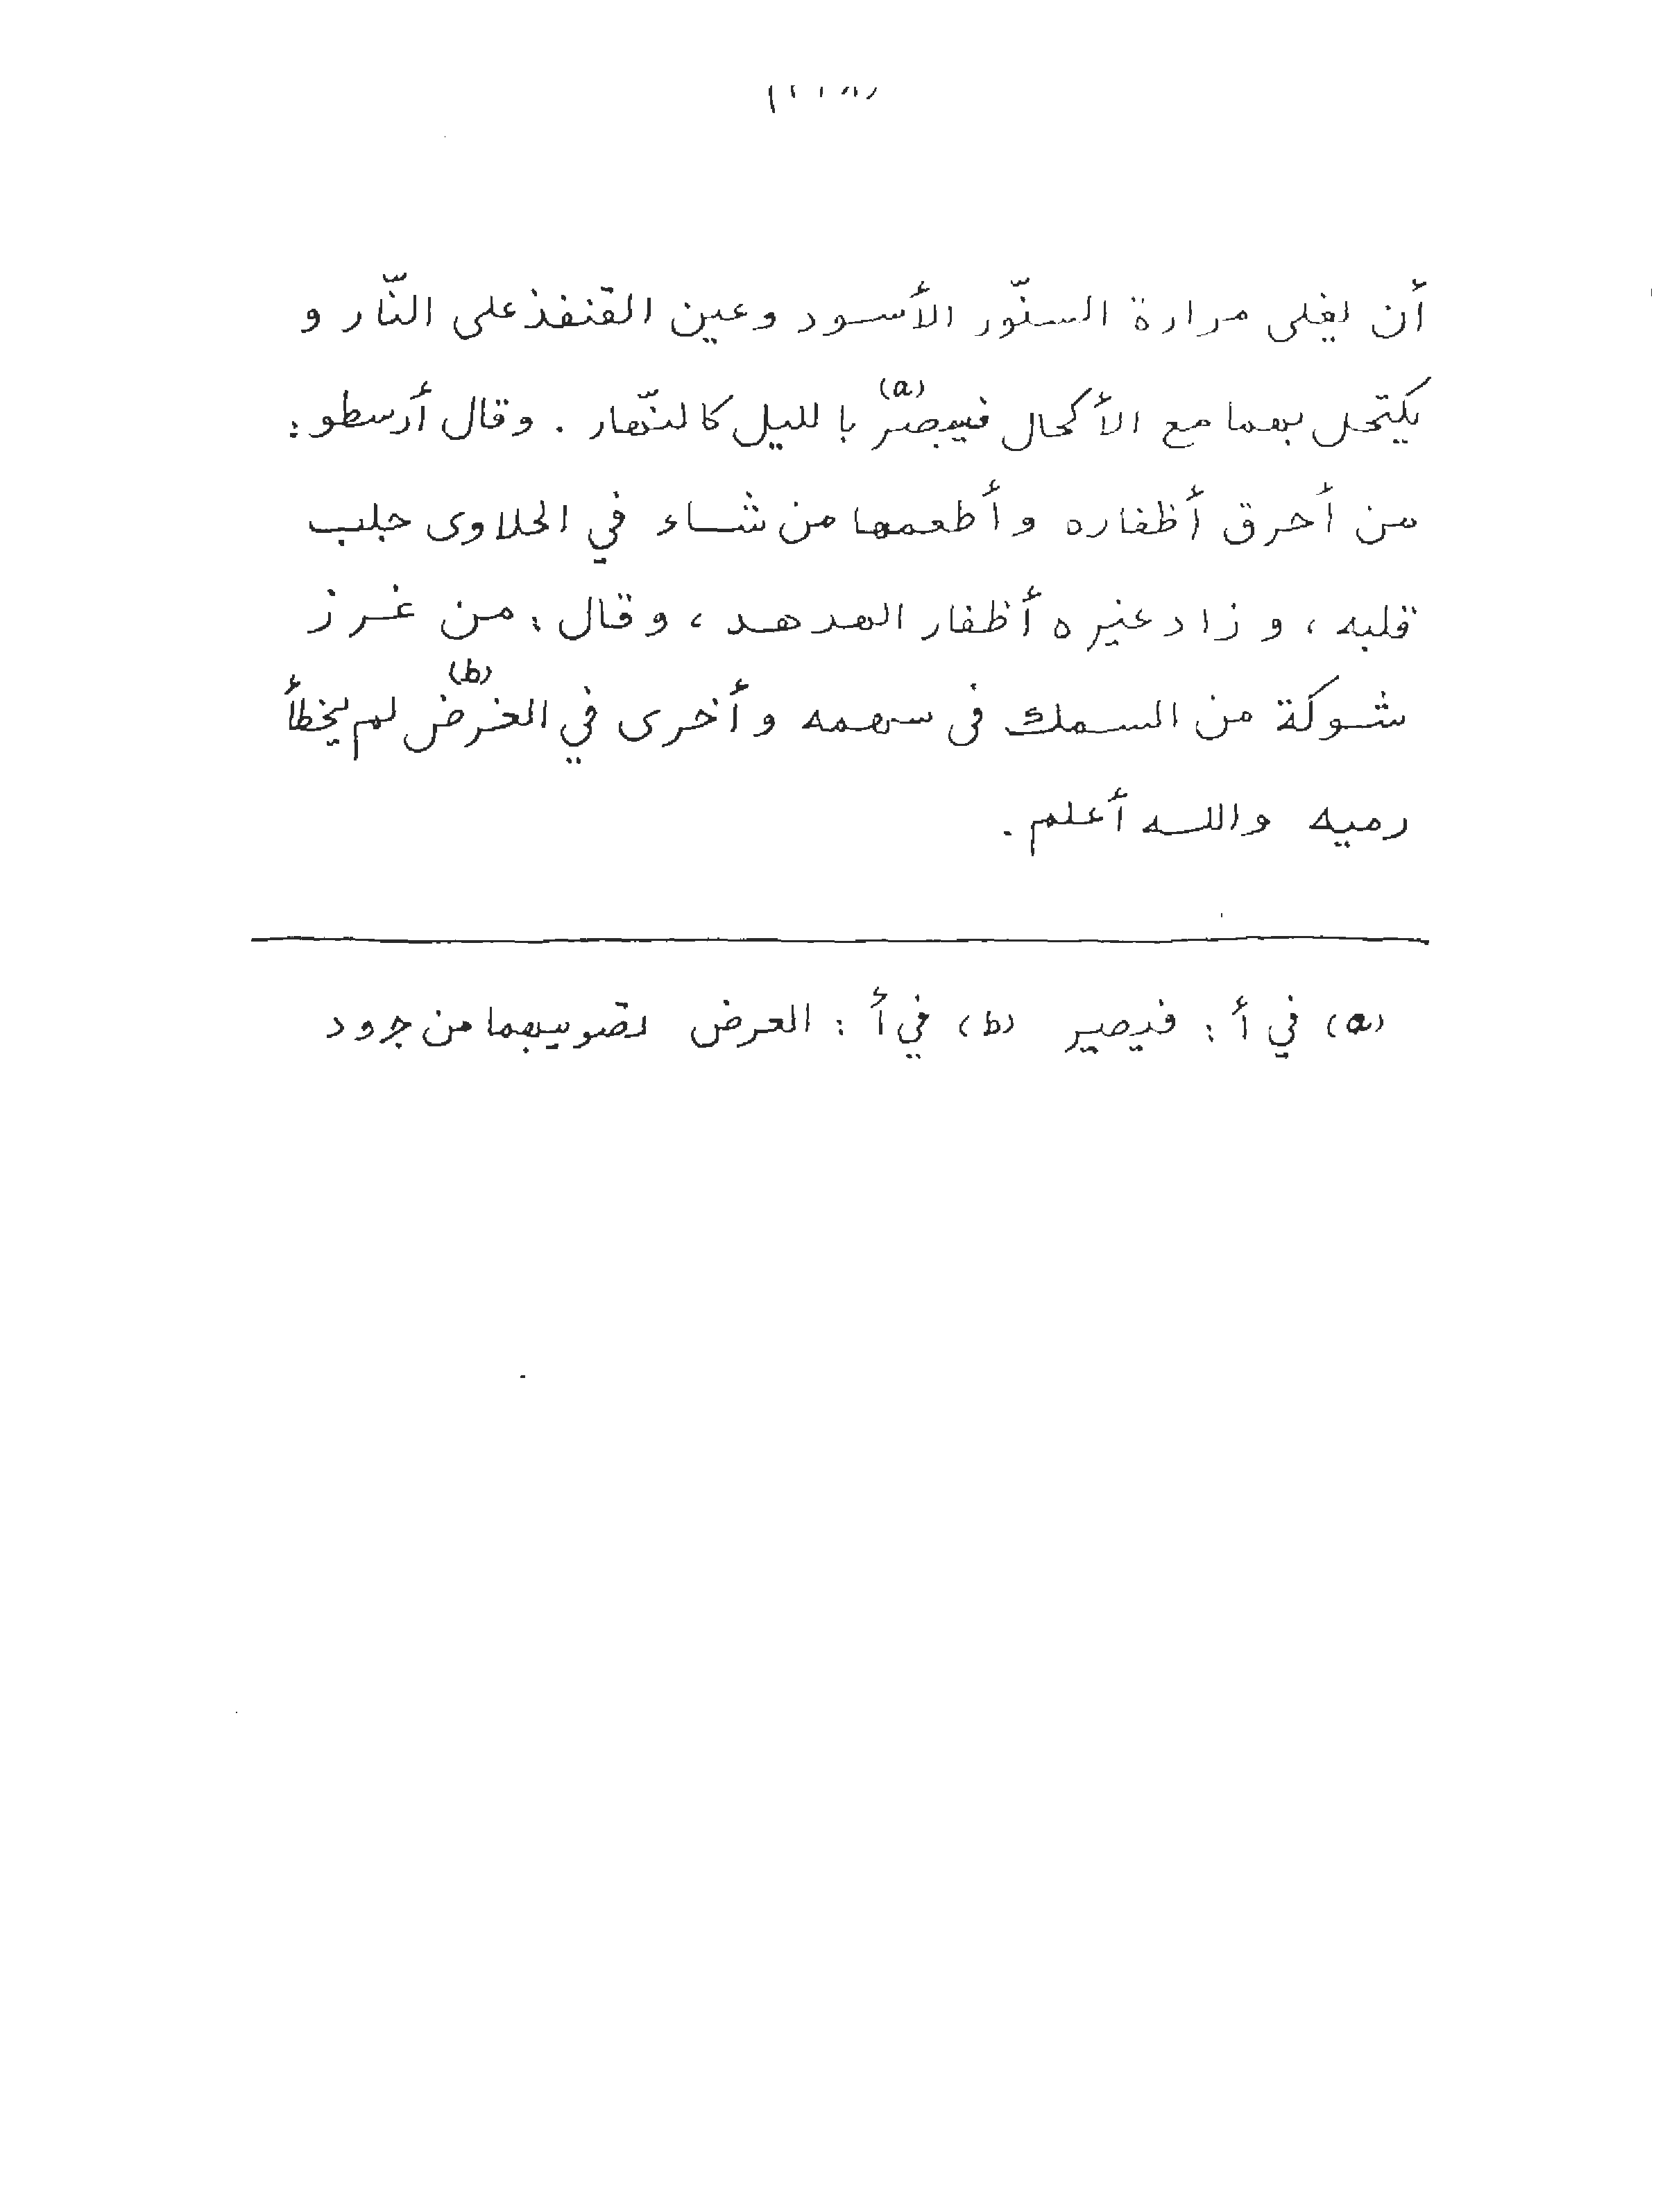 أن يغلى مرارة السنّور الأسود وعين القنفذ على النّار و
يكتحل بهما مع الأكحال فيبصر (a) بالليل كالنّهار . وقال أرسطو :
من أحرق أظفاره وأطعمها من شاء في الحلاوى جلب
قلبه ، وزاد غيره أظفار الهدهد ، وقال : من غرز
شوكة من السمك فى سهمه وأخرى في الغرض (b) لم يخطأ
رميه والله أعلم .
(a) في أ : فيصير (b) في أ : العرض تصويبهما من ج و د